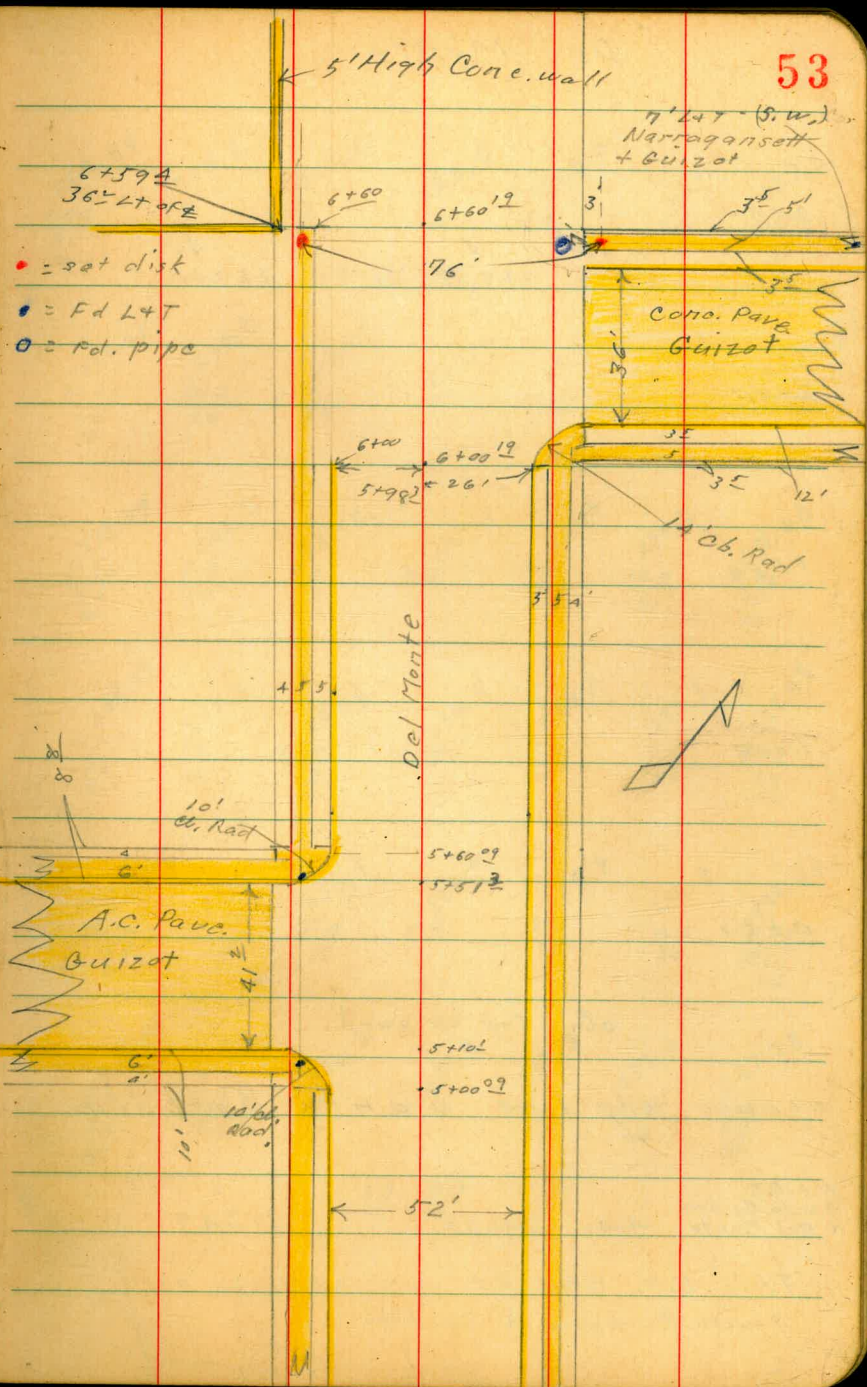 53
5' High Conc. wall
7' L&T - (S.W.)
Narragansett
+ Guizot
6+59 4
36 Lt of ℄
6+60
6+60 19
3
3 5
5'
7'
76'
3 5
• = set disk
• = Fd L&T
o = Fd. pipe
Conc. Pave
Guizot
36'
6+00
6+00 19
5+98
26'
3 5
5
3 5
12'
14' Cb. Rad
5 5 4'
4 5 5
Del Monte
8 8
10'
Cb. Rad
4
6'
5+60 09
5+51 3
A.C. Pave.
Guizot
41 2
6'
4'
10'
10' Cb.
Rad.
5+10 1
5+00 09
52'